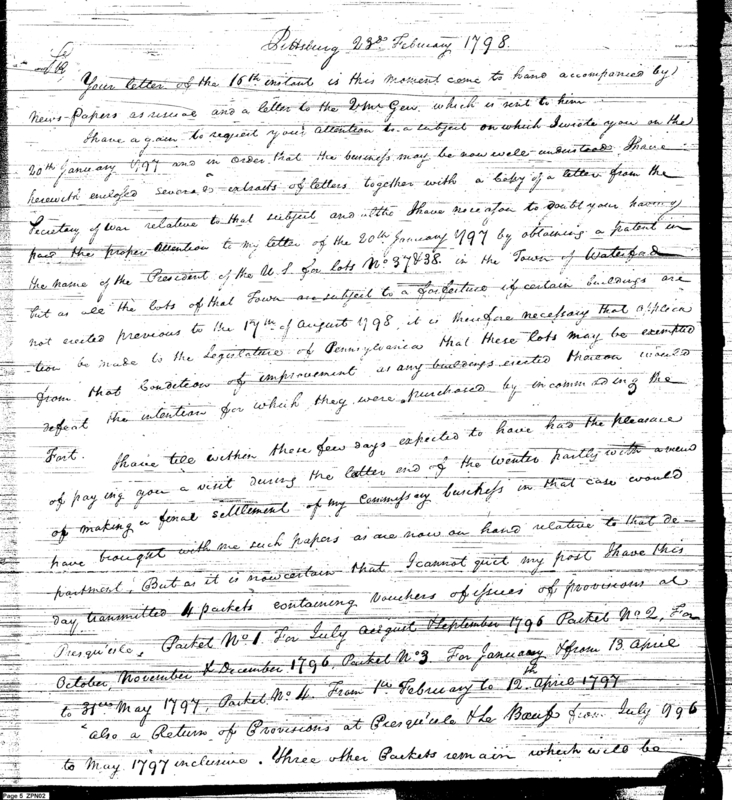 Pittsburg 23rd February 1798.
Sir
Your letter of the 16th instant is this moment come to hand accompanied by
News-Papers as usual and a letter to the Qr Mr Gen. which is sent to him
I have again to request your attention to a subject on which I wrote you on the
20th January 1797 and in order that the business may be now well understood, I have
herewith enclosed several extracts of letters together with a Copy of a letter from the
Secretary of War relative to that subject and altho I have no reason to doubt your having
paid the proper attention to my letter of the 20th January 1797 by obtaining a patent in
the name of the President of the U.S. for lots No 37 & 38 in the Town of Waterford
but as all the lots of that Town are subject to a forfeiture if certain buildings are
not erected previous to the 17th of August 1798, it is therefore necessary that applica
tion be made to the Legislature of Pennsylvania that these lots may be exempted
from that Condition of improvement as any buildings erected thereon would
defeat the intention for which they were purchased by incommoding the
Fort. I have till within these few days expected to have had the pleasure
of paying you a visit during the latter end of the Winter partly with a view
of making a final settlement of my Commissary business in that case would
have brought with me such papers as are now on hand relative to that de-
partment, But as it is now certain that I cannot quit my post I have this
day transmitted 4 packets containing vouchers of issues of provisions at
Presqu'isle, Packet No 1. For July august & September 1796 Packet No 2, For
October, November & December 1796, Packet No 3. For January & from 13. April
to 31st May 1797, Packet No 4. From 1st February to 12th April 1797
also a Return of Provisions at Presqu'isle & Le Bœuf from July 1796
to May 1797 inclusive. Three other Packets remain which will be
Page 5 ZPN02